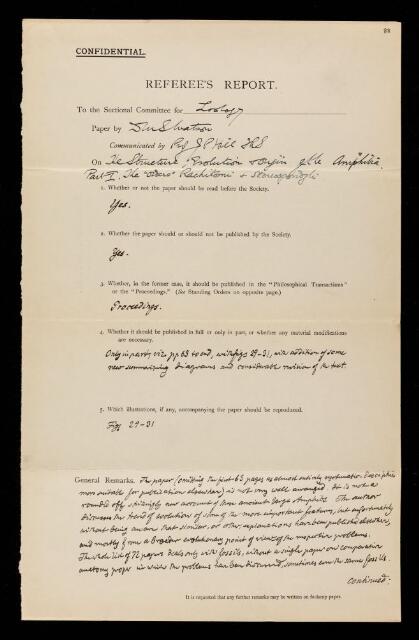 88
CONFIDENTIAL.
REFEREE'S REPORT.
To the Sectional Committee for Zoology
Paper by D M S Watson
Communicated by Prof J P Hill FRS
On The Structure, Evolution & Origin of the Amphibia.
Part I. The "Orders" Rachitomi & Stereospondyli
1. Whether or not the paper should be read before the Society.
Yes.
2. Whether the paper should or should not be published by the Society.
Yes.
3. Whether, in the former case, it should be published in the "Philosophical Transactions"
or the "Proceedings." (See Standing Orders on opposite page.)
Proceedings.
4. Whether it should be published in full or only in part, or whether any material modifications
are necessary.
Only in part, viz. pp 63 to end, with figs 29-31, with addition of some
new summarizing diagrams and considerable revision of the text.
5. Which illustrations, if any, accompanying the paper should be reproduced.
Figs 29-31
General Remarks. The paper (omitting the first 63 pages as almost entirely systematic descriptive
more suitable for publication elsewhere) is not very well arranged. It is not a
rounded off, strikingly new account of these ancient large Amphibia. The author
discusses the trend of evolution of some of the more important features, but unfortunately
without being aware that similar or other explanations have been published elsewhere,
and mostly from a broader evolutionary point of view of the respective problems.
The whole list of 72 papers deals only with fossils, without a single paper on comparative
anatomy proper in which the problems have been discussed, sometimes even the same fossils.
continued.
It is requested that any further remarks may be written on foolscap paper.